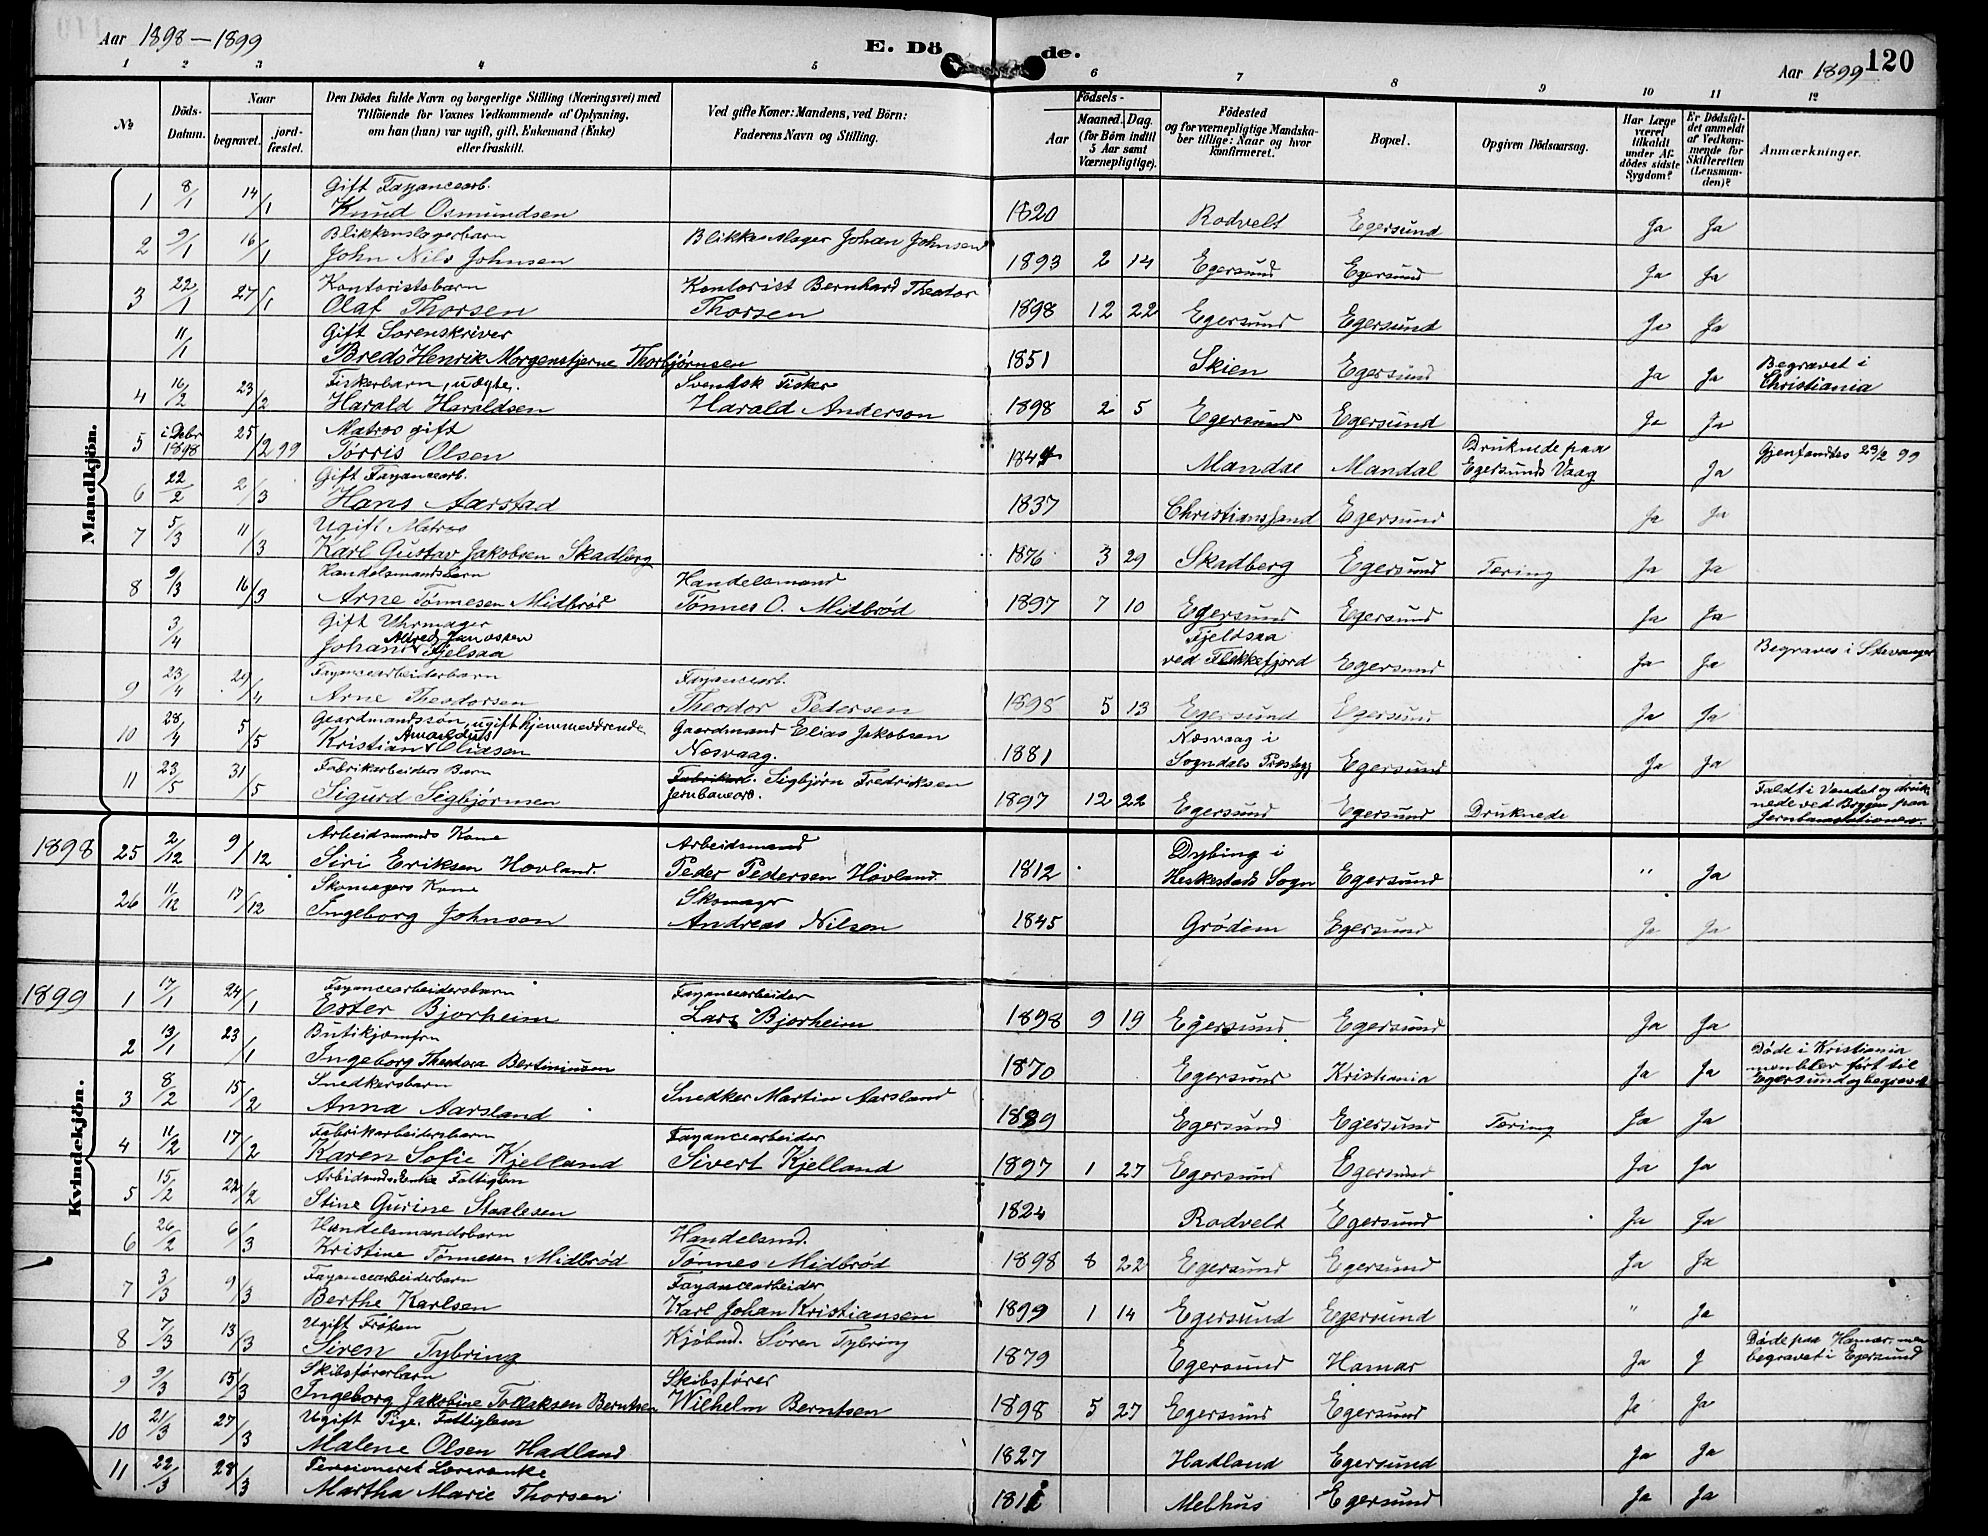 Aar 1898–1899
E. Dö de.
Aar 1899
120
1 2 3 4 5 6 7 8 9 10 11 12
№
Döds-Datum.
Naar
begravet.
jord-fæstet.
Den Dödes fulde Navn og borgerlige Stilling (Næringsvei) med
Tilföiende for Voxnes Vedkommende af Oplysning,
om han (hun) var ugift, gift, Enkemand (Enke)
eller fraskilt.
Ved gifte Koner: Mandens, ved Börn:
Faderens Navn og Stilling.
Födsels-
Aar
Maaned. Dag.
(for Börn indtil
5 Aar samt
Værnepligtige).
Födested
og for værnepligtige Mandska-
ber tillige: Naar og hvor
konfirmeret.
Bopæl.
Opgiven Dödsaarsag.
Har Læge
været
tilkaldt
under Af-
dödes sidste
Sygdom?
Er Dödsfal-
det anmeldt
af Vedkom-
mende for
Skifteretten
(Lensman-
den)?
Anmærkninger.
Mandkjön.
Gift Fayancearb.
1 8/1 14/1 Knud Osmundsen 1820 Rodvelt Egersund Ja Ja
Blikkenslagerbarn
2 9/1 16/1 John Nils Johnsen Blikkenslager Johan Johnsen 1893 2 14 Egersund Egersund Ja Ja
Kontoristsbarn Kontorist Bernhard Theodor
3 22/1 27/1 Olaf Thorsen Thorsen 1898 12 22 Egersund Egersund Ja Ja
Gift Sorenskriver
11/1 Bredo Henrik Morgenstjerne Thorbjørnsen 1851 Skien Egersund Ja Ja Begravet i
Christiania
Fiskerbarn, uægte. Svendsk Fisker
4 16/2 23/2 Harald Haraldsen Harald Anderson 1898 2 5 Egersund Egersund Ja Ja
Matros gift Druknede paa
5 i Debr 1898 25/2 99 Tørris Olsen 1844 Mandal Mandal Egersunds Vaag Ja Gjenfandtes 23/2 99
Gift Fayancearb.
6 22/2 2/3 Hans Aarstad 1837 Christianssand Egersund Ja Ja
Ugift Matros
7 5/3 11/3 Karl Gustav Jakobsen Skadberg 1876 3 29 Skadberg Egersund Tæring Ja Ja
Handelsmandsbarn Handelsmand
8 9/3 16/3 Arne Tønnesen Midbrød Tønnes O. Midbrød 1897 7 10 Egersund Egersund Ja Ja
Gift Uhrmager
Alfred Janassen Fjeldsaa
3/4 Johan Fjelsaa ved Flekkefjord Egersund Ja Ja Begraves i Stavanger
Fayancearbeiderbarn Fayancearb.
9 23/4 29/4 Arne Theodorsen Theodor Pedersen 1895 5 13 Egersund Egersund Ja Ja
Gaardmandssøn, ugift hjemmeværende Gaardmand Elias Jakobsen Næsvaag i
10 28/4 5/5 Kristian Eliasen Næsvaag. 1881 Sogndals Præstegj Egersund Ja Ja
Fabrikarbeiders Barn Fabrikarb. Sigbjørn Fredriksen
11 23/5 31/5 Sigurd Sigbjørnsen Jernbanearb. 1897 12 22 Egersund Egersund Druknede Faldt i Vandet og druk-
nede ved Bryggen paa
Jernbanestationen.
1898
Arbeidsmands Kone Arbeidsmand Dybing i
25 2/12 9/12 Siri Eriksen Hovland. Peder Pedersen Hovland. 1812 Heskestads Sogn Egersund " Ja
Skomagers Kone Skomager
26 11/12 17/12 Ingeborg Johnson Andreas Nilsen 1845 Grødem Egersund Ja Ja
1899
Kvindekjön.
Fayancearbeidersbarn Fayancearbeider
1 17/1 24/1 Ester Bjorheim Lars Bjorheim 1898 9 19 Egersund Egersund Ja Ja
Butikjomfru
2 13/1 23/1 Ingeborg Theodora Bertiniusen 1870 Egersund Kristiania Ja Ja Døde i Kristiania
men blev ført til
Egersund og begravet
Snedkersbarn
3 8/2 15/2 Anna Aarsland Snedker Martin Aarsland 1889 Egersund Egersund Tæring Ja Ja
Fabrikarbeidersbarn Fayancearbeider
4 11/2 17/2 Karen Sofie Kjelland Sivert Kjelland 1897 1 27 Egersund Egersund Ja Ja
Arbidmdsenke Fattiglem
5 15/2 22/2 Stine Gurine Staalesen 1824 Rodvelt Egersund Ja Ja
Handelsmandsbarn Handelsmd.
6 26/2 6/3 Kristine Tønnesen Midbrød Tønnes Midbrød 1898 8 22 Egersund Egersund Ja Ja
Fayancearbeiderbarn Fayancearbeider
7 3/3 9/3 Berthe Karlsen Karl Johan Kristiansen 1899 1 14 Egersund Egersund " Ja
Ugift Frøken
8 7/3 13/3 Siren Tybring Kjøbmd. Søren Tybring 1879 Egersund Hamar Ja J Døde paa Hamar, men
begravet i Egersund
Skibsførerbarn Skibsfører
9 9/3 15/3 Ingeborg Jakobine Berntsen Wilhelm Berntsen 1898 5 27 Egersund Egersund Ja Ja
Ugift Pige. Fattiglem
10 21/3 27/3 Malene Olsen Hadland 1827 Hadland Egersund Ja Ja
Pensioneret Lærerenke
11 22/3 28/3 Martha Marie Thorsen Melhus Egersund Ja Ja